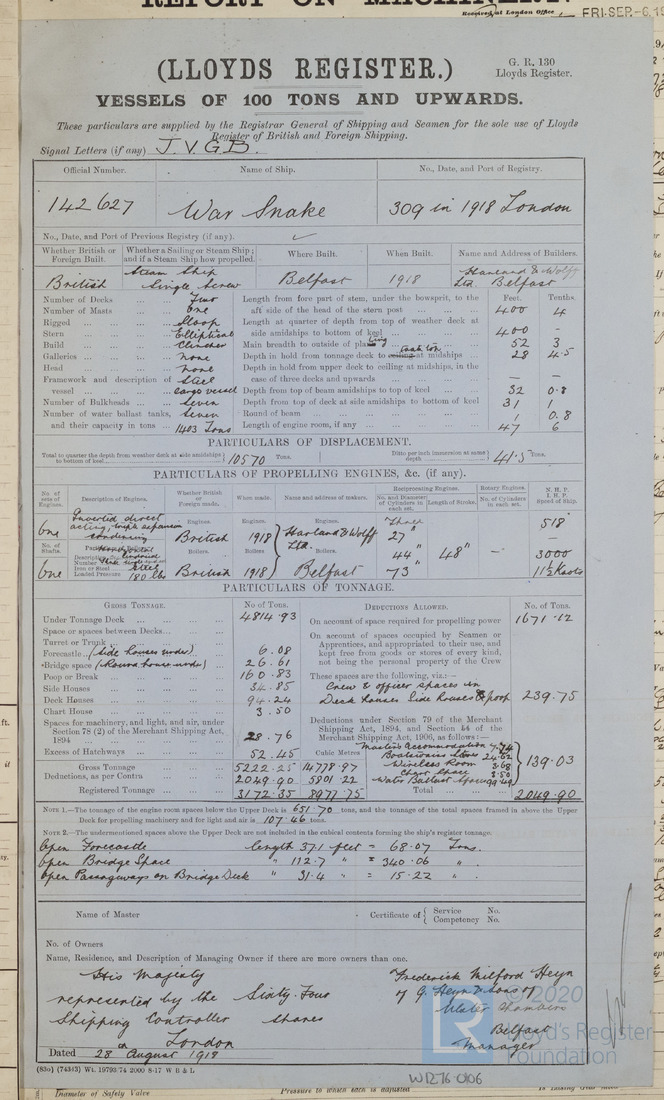 REPORT ON MACHINERY.
Received at London Office FRI. SEP. -6. 19
(LLOYDS REGISTER.)
G. R. 130
Lloyds Register.
VESSELS OF 100 TONS AND UPWARDS.
These particulars are supplied by the Registrar General of Shipping and Seamen for the sole use of Lloyds
Register of British and Foreign Shipping.
Signal Letters (if any) J.V.G.B.
Official Number. Name of Ship. No., Date, and Port of Registry.
142627 War Snake 309 in 1918 London
No., Date, and Port of Previous Registry (if any).
Whether British or Foreign Built. Whether a Sailing or Steam Ship; and if a Steam Ship how propelled. Where Built. When Built. Name and Address of Builders.
British Steam Ship Single Screw Belfast 1918 Harland & Wolff Ltd. Belfast
Number of Decks Two Length from fore part of stem, under the bowsprit, to the Feet. Tenths.
Number of Masts One aft side of the head of the stern post 400 4
Rigged Sloop Length at quarter of depth from top of weather deck at
Stern Elliptical side amidships to bottom of keel 400 —
Build Clincher Main breadth to outside of plating 52 3
Galleries None Depth in hold from tonnage deck to ceiling at midships 28 4.5
Head None Depth in hold from upper deck to ceiling at midships, in the
Framework and description of Steel case of three decks and upwards — —
vessel cargo vessel Depth from top of beam amidships to top of keel 32 0.8
Number of Bulkheads Seven Depth from top of deck at side amidships to bottom of keel 31 1
Number of water ballast tanks, Seven Round of beam 1 0.8
and their capacity in tons 1403 Tons Length of engine room, if any 47 6
PARTICULARS OF DISPLACEMENT.
Total to quarter the depth from weather deck at side amidships to bottom of keel 10570 Tons. Ditto per inch immersion at same depth 41.3 Tons.
PARTICULARS OF PROPELLING ENGINES, &c. (if any).
No. of sets of Engines. Description of Engines. Whether British or Foreign made. When made. Name and address of makers. Reciprocating Engines. No. and Diameter of Cylinders in each set. Length of Stroke. Rotary Engines. No. of Cylinders in each set. N. H. P. I. H. P. Speed of Ship.
One Inverted direct acting, triple expansion condensing Engines. British Engines. 1918 Engines. Harland & Wolff Ltd. Three 27" 518
No. of Shafts. Boilers. Boilers Boilers. 44" 48" — 3000
One Steel 180 lbs British 1918 Belfast 73" 11½ Knots
PARTICULARS OF TONNAGE.
GROSS TONNAGE. No. of Tons. DEDUCTIONS ALLOWED. No. of Tons.
Under Tonnage Deck 4814.93 On account of space required for propelling power 1671.12
Space or spaces between Decks On account of spaces occupied by Seamen or
Turret or Trunk Apprentices, and appropriated to their use, and
Forecastle (Side houses under) 6.08 kept free from goods or stores of every kind,
Bridge space (Round house under) 26.61 not being the personal property of the Crew
Poop or Break 160.83 These spaces are the following, viz.:—
Side Houses 34.85 Crew & officer spaces in
Deck Houses 94.24 Deck houses Side houses & poop 239.75
Chart House 3.50
Spaces for machinery, and light, and air, under Deductions under Section 79 of the Merchant
Section 78 (2) of the Merchant Shipping Act, Shipping Act, 1894, and Section 54 of the
1894 28.76 Merchant Shipping Act, 1906, as follows:—
Excess of Hatchways 52.45 Cubic Metres Master's Accommodation
Boatswains Stores
Gross Tonnage 5222.25 14778.97 Wireless Room 3.08 139.03
Deductions, as per Contra 2049.90 5801.22 Chart Space 3.50
Water Ballast Spaces
Registered Tonnage 3172.35 8977.75 Total 2049.90
NOTE 1.—The tonnage of the engine room spaces below the Upper Deck is 651.70 tons, and the tonnage of the total spaces framed in above the Upper
Deck for propelling machinery and for light and air is 107.46 tons.
NOTE 2.—The undermentioned spaces above the Upper Deck are not included in the cubical contents forming the ship's register tonnage.
Open Forecastle length 37.1 feet = 68.07 Tons.
Open Bridge Space " 112.7 " = 340.06 " .
Open Passageways on Bridge Deck " 31.4 " = 15.22 " .
Name of Master Certificate of { Service No. Competency No.
No. of Owners
Name, Residence, and Description of Managing Owner if there are more owners than one.
His Majesty Frederick Milford Heyn
represented by the Sixty Four of G. Heyn & Sons of
Shipping Controller Shares Ulster Chambers
London Belfast
Manager
Dated 28th August 1918
(83o) (74343) Wt. 19793/74 2000 8-17 W B & L
W1276-0106
© 2020
Lloyd's Register
Foundation
Diameter of Safety Valve Pressure to which each is adjusted